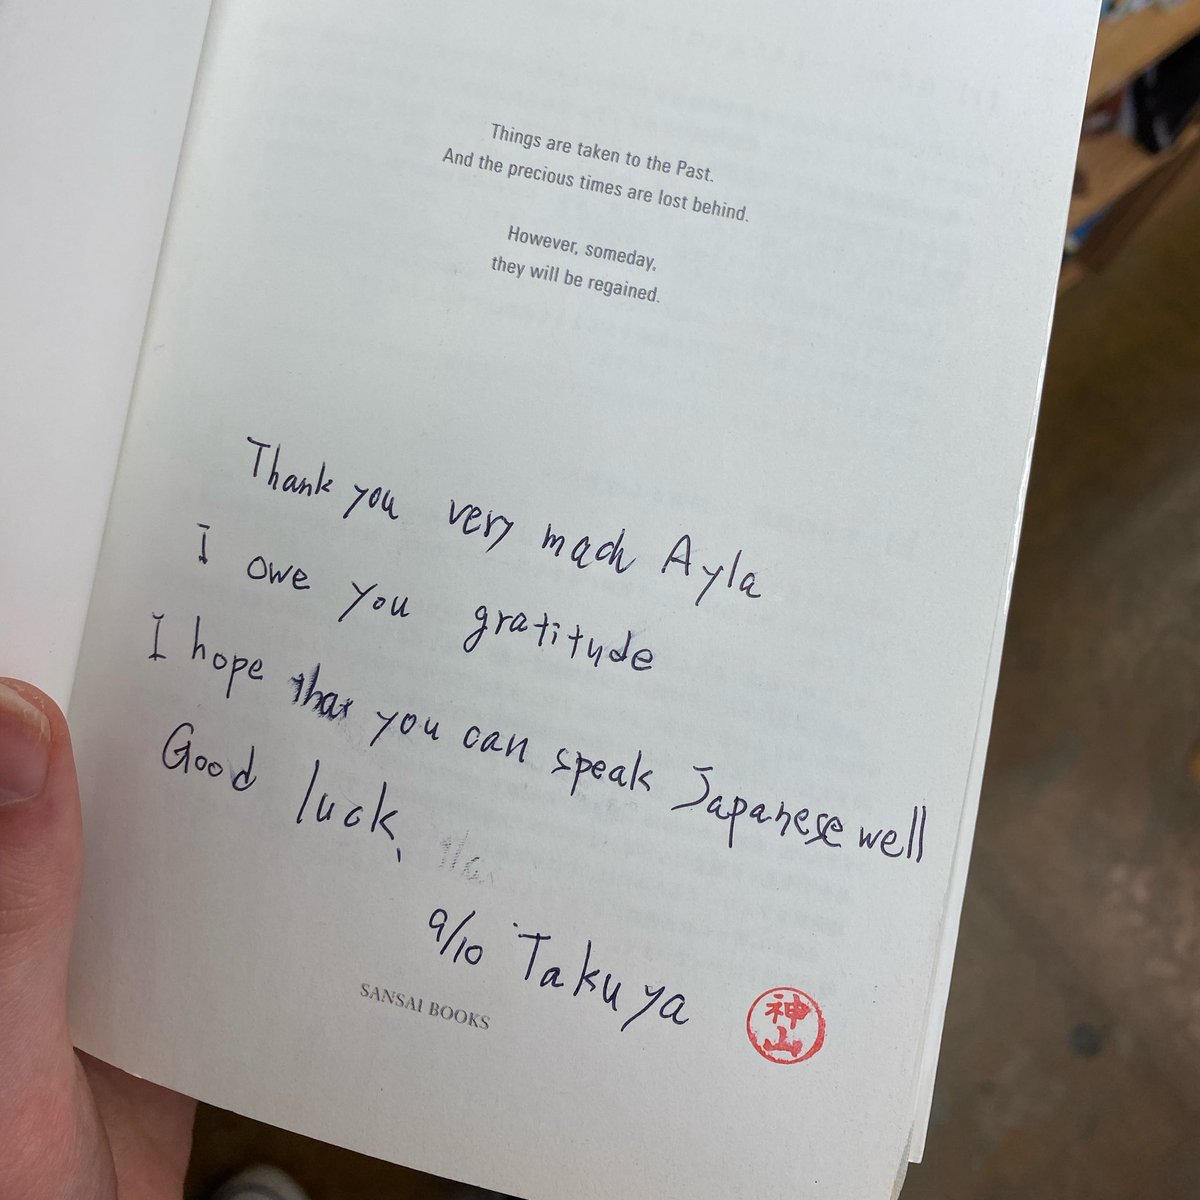 Things are taken to the Past.
And the precious times are lost behind.
However, someday,
they will be regained.
Thank you very mach Ayla
I owe you gratitude
I hope that you can speak Japanese well
Good luck,
9/10 Takuya
神山
SANSAI BOOKS